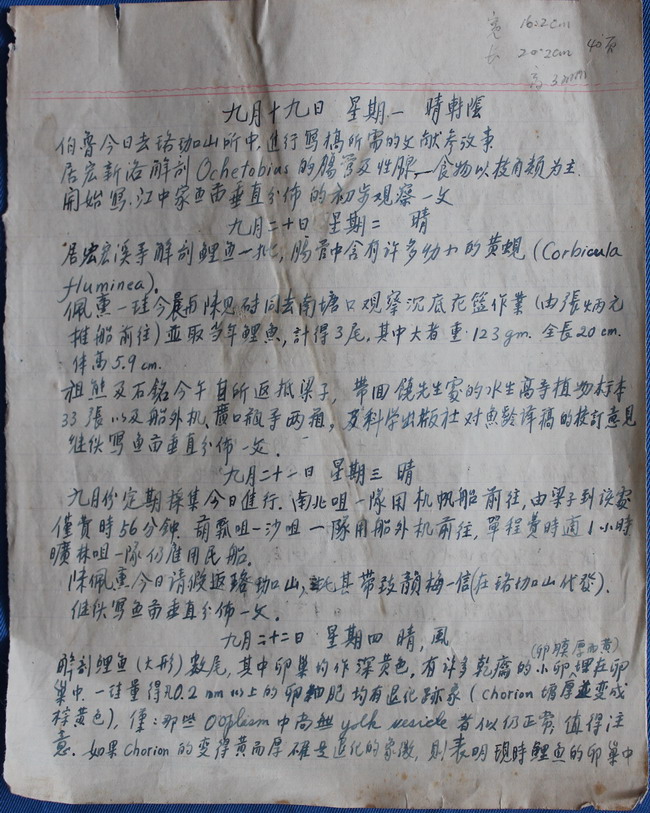 宽 16.2cm
长 20.2cm 40页
高 3mm
九月十九日 星期一 晴转阴
伯鲁今日去珞珈山所中,进行写稿所需的文献参考事.
居宏新洛解剖Ochetobius的肠管及性腺,食物以枝角类为主.
开始写.江中家鱼苗垂直分佈的初步观察一文
九月二十日 星期二 晴
解剖鲤鱼一批,肠管中含有许多幼小的黄蚬(Corbicula
fluminea).
佩薰一珪今晨再陈见时同去南塘口观察沉底花篮作业(由张炳元
推船前往)並取当年鲤鱼,計得3尾,其中大者重123gm.全長20cm.
体高5.9cm.
祖熊及石銘今午自所返抵梁子,带回饶先生处的水生高等植物标本
33張以及船外机、廣口瓶等两箱,及科学出版社对魚齡译稿的校訂意见
继续写鱼苗垂直分佈一文.
九月二十一日 星期三 晴
九月份定期採集今日進行.南北咀一隊用机帆船前往,由梁子到该处
僅費時56分钟.葫瓢咀一沙咀一隊用船外机前往,單程费時適1小時
曠林咀一隊仍雇用民船.
陳佩薰今日请假返珞珈山,託其带致颜梅一信(在珞珈山代發).
继续写鱼苗垂直分佈一文.
九月二十二日 星期四 晴,風
(卵膜厚而黄)
解剖鲤鱼(大形)数尾,其中卵巢均作深黄色.有许多乾瘪的小卵埋在卵
巢中.一珪量得凡0.2mm以上的卵细胞均有退化跡象(chorion增厚並变成
棕黄色),僅:那些Ooplasm中尚無yolk vesicle者似仍正常,值得注
意.如果Chorion的变得黄而厚確是退化的象徵,则表明现時鲤鱼的卵巢中